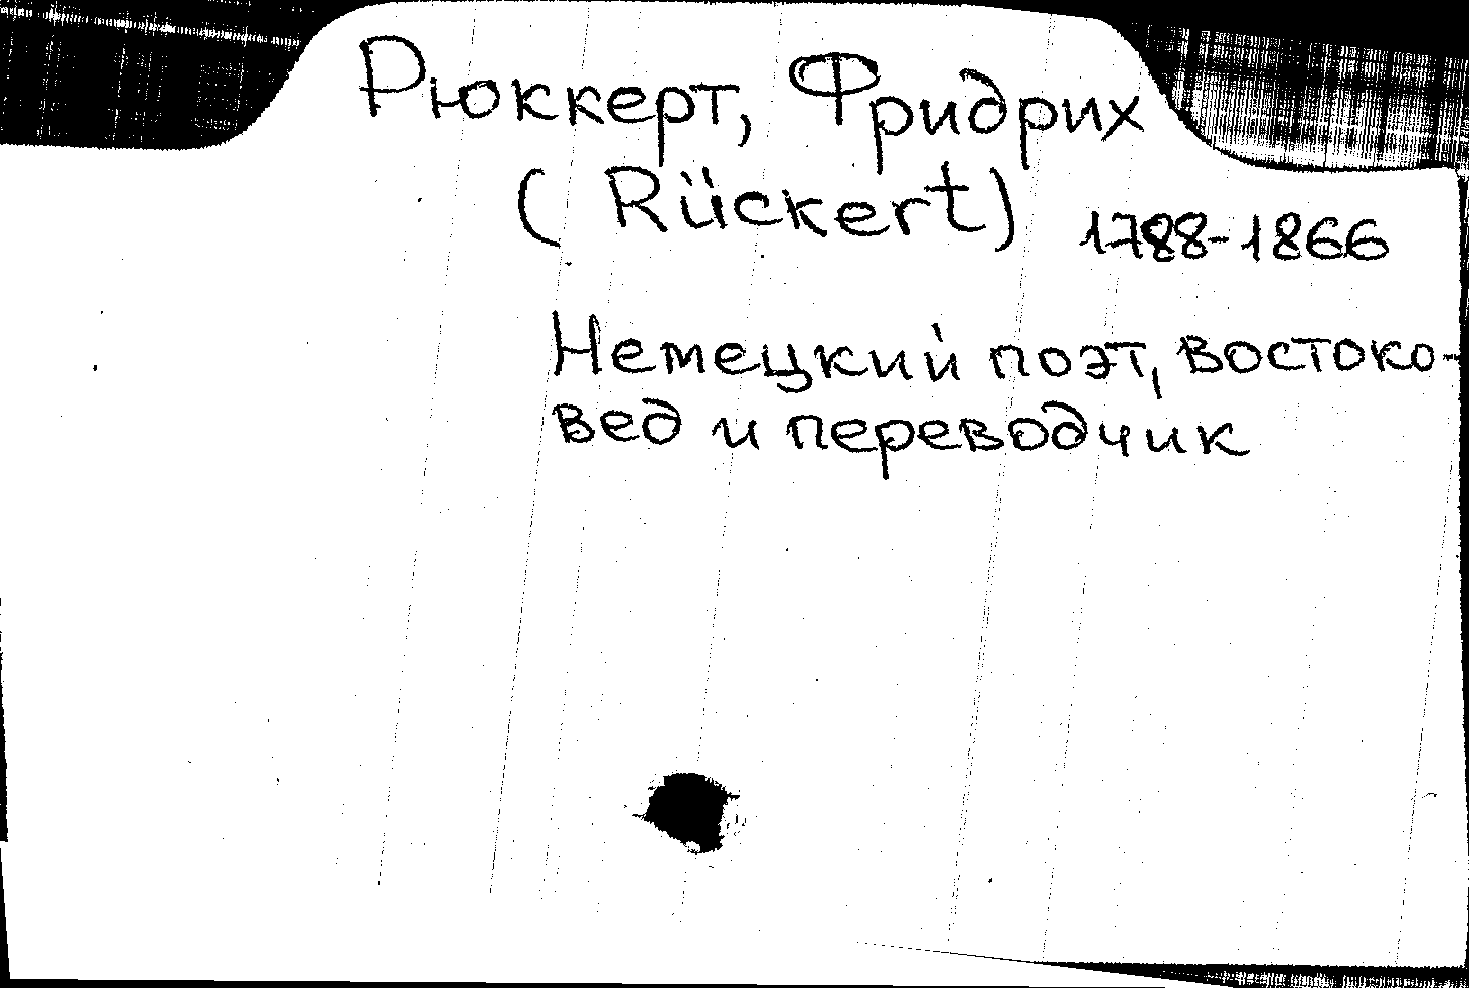 Рюккерт, Фридрих
(Rückert) 1788-1866
Немецкий поэт, востоко-
вед и переводчик